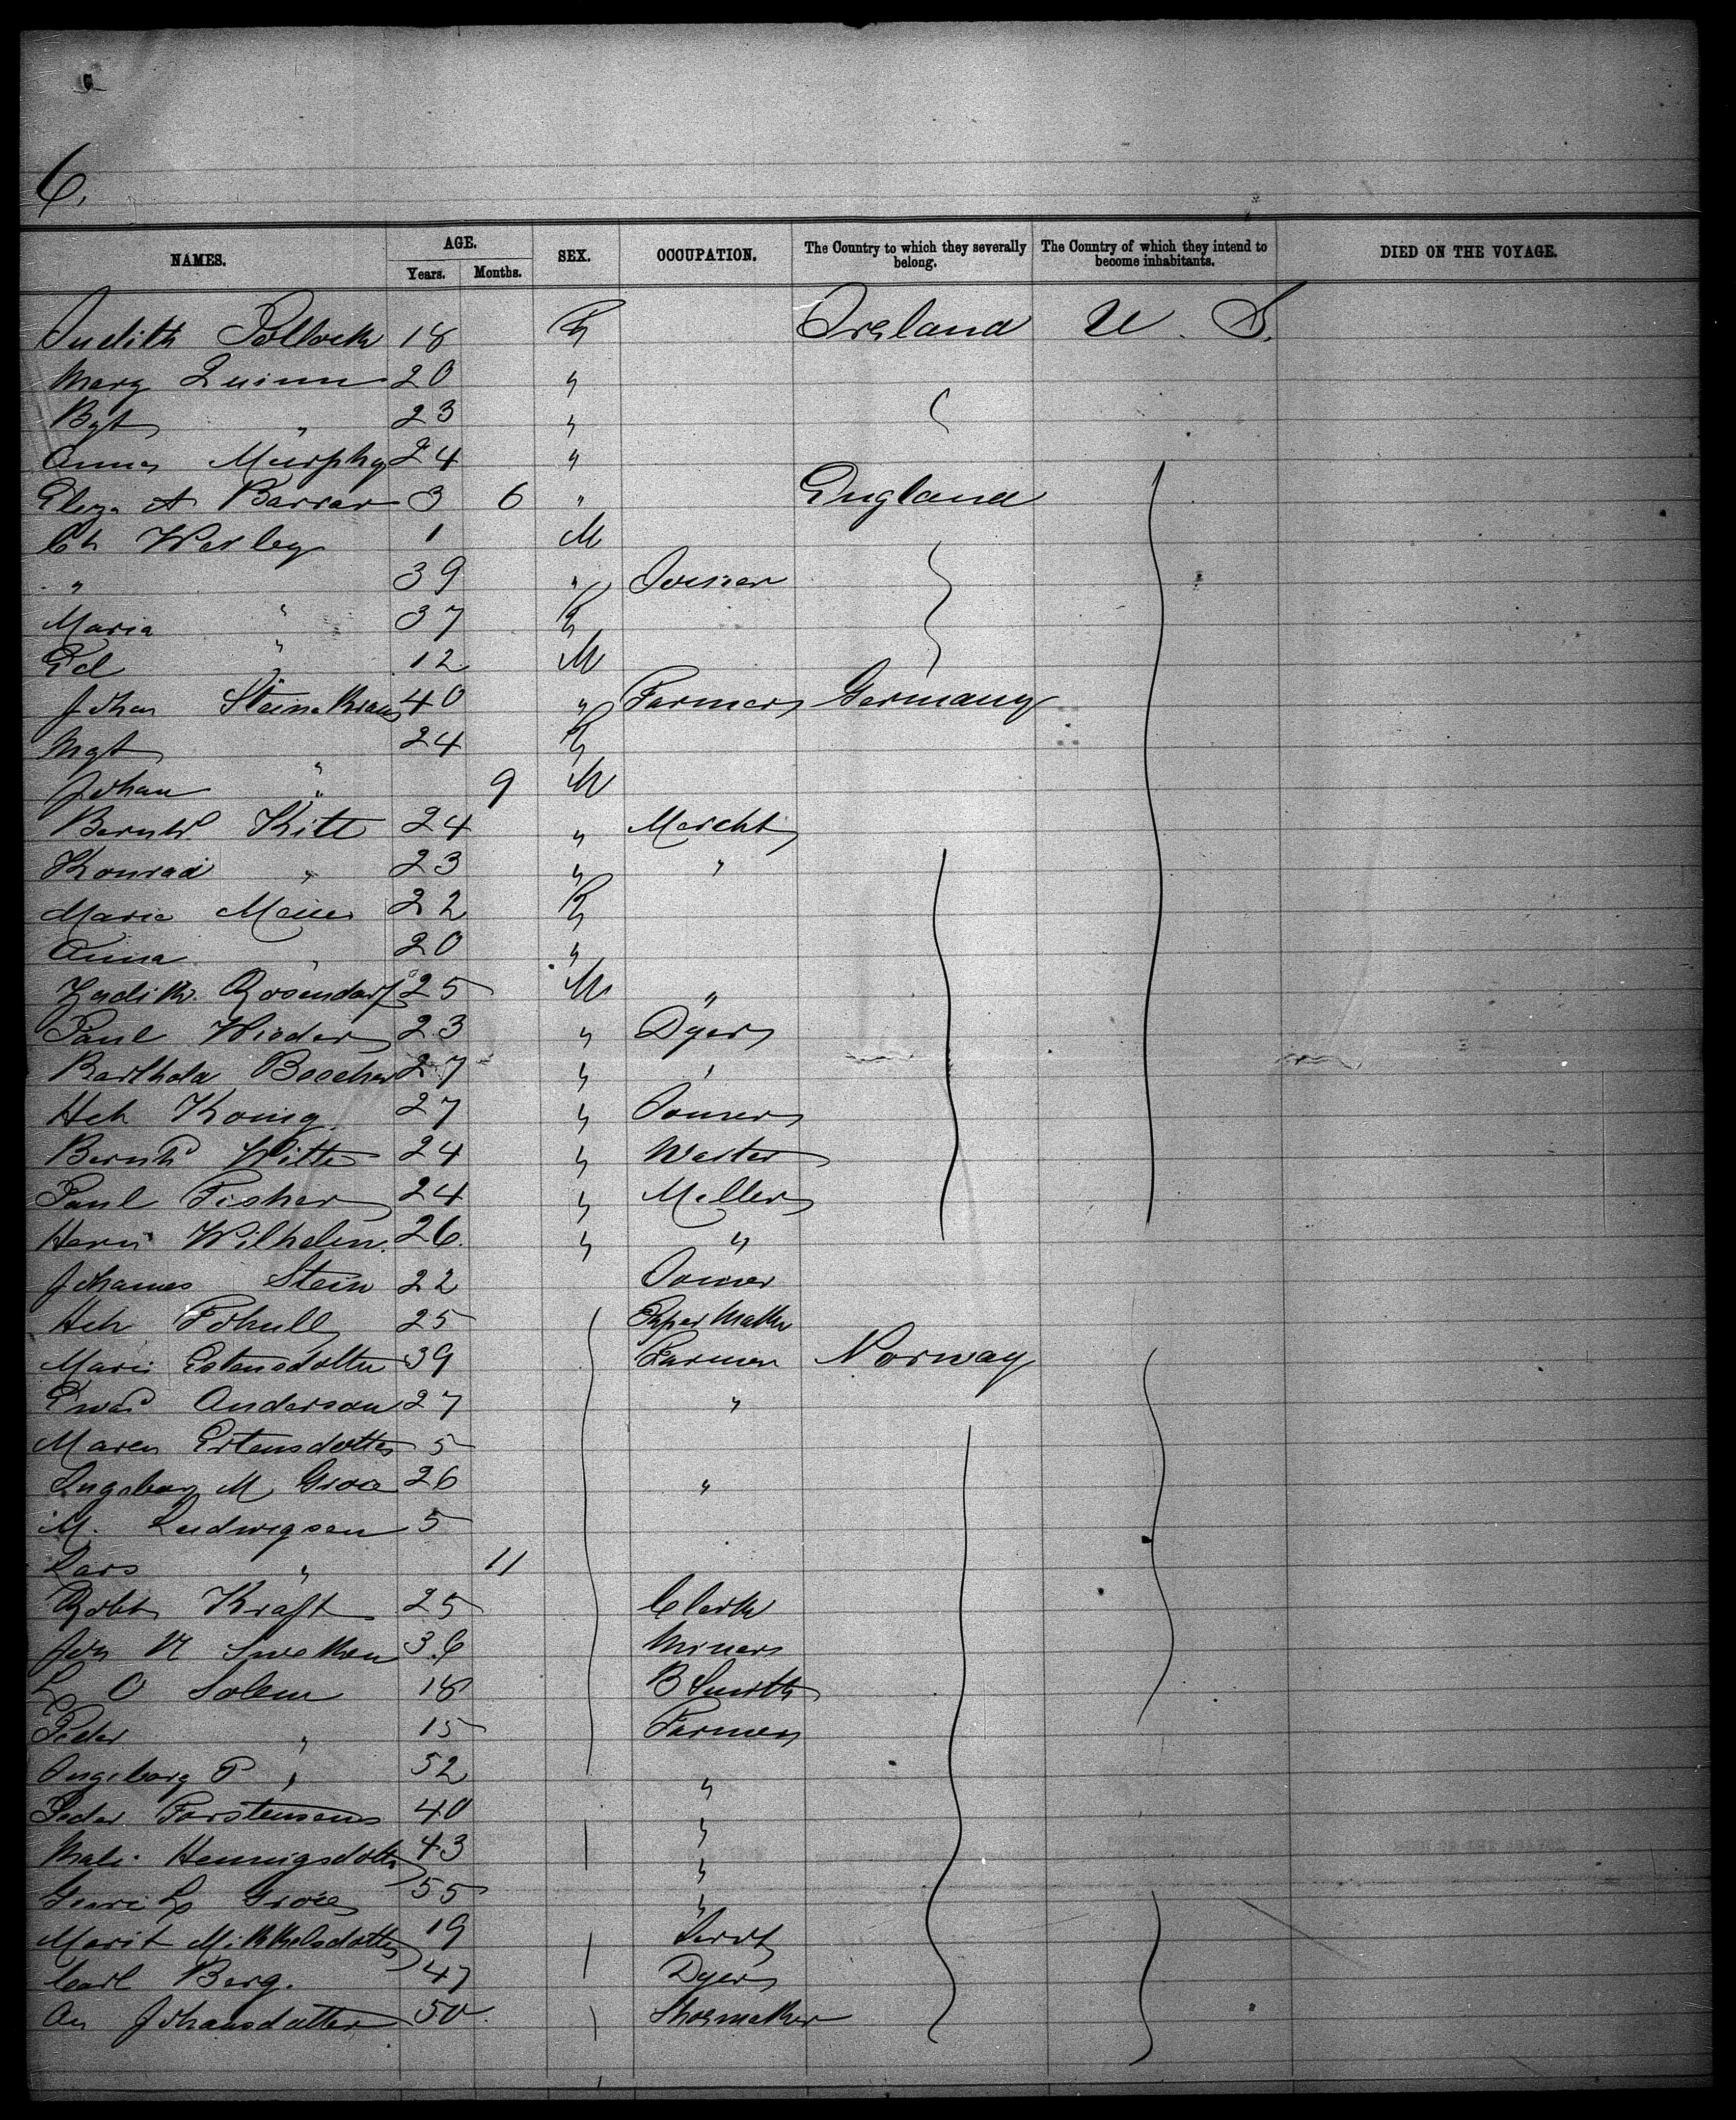 6.
NAMES. AGE. SEX. OCCUPATION. The Country to which they severally belong. The Country of which they intend to become inhabitants. DIED ON THE VOYAGE.
Years. Months.
Judith Pollock 18 F Ireland U. S.
Mary Quinn 20 "
Bgt " 23 "
Annes Murphy 24 "
Eliza A Barrar 3 6 " England
Ch Werley 1 M
" 39 " Joiner
Maria " 37 F
Ed " 12 M
Johan 40 " Farmer Germany
Mgt " 24 F
Johan " 9 M
Bernhd Kitt 24 " Mercht
Konrad " 23 " "
Marie Meier 22 F
Anna " 20 "
Rosendorf 25 M "
Paul Wieder 23 " Dyer
Barthola Boecher 27 " "
Hch Konig 27 " Joiner
Bernhd Witte 24 " Waiter
Paul Fisher 24 " Miller
Wilhelm. 26. " "
Johannes Stein 22 Joiner
Hch 25 Paper Maker
Mari Estensdotter 39 Farmer Norway
Anderson 27 "
Maren Estensdotter 5
Ingeborg M 26 "
M. Ludwigsen 5
Lars " 11
Robt Kraft 25 Clerk
Jon 36 Miner
L O Solem 18 B Smith
Peder " 15 Farmer
Ingeborg P " 52 "
Peder Torstensens 40 "
Mali Henningsdotter 43 "
55 "
Marit Mikkelsdotter 19 Servt
Carl Berg. 47 Dyer
An Johansdatter 50. Shoemaker